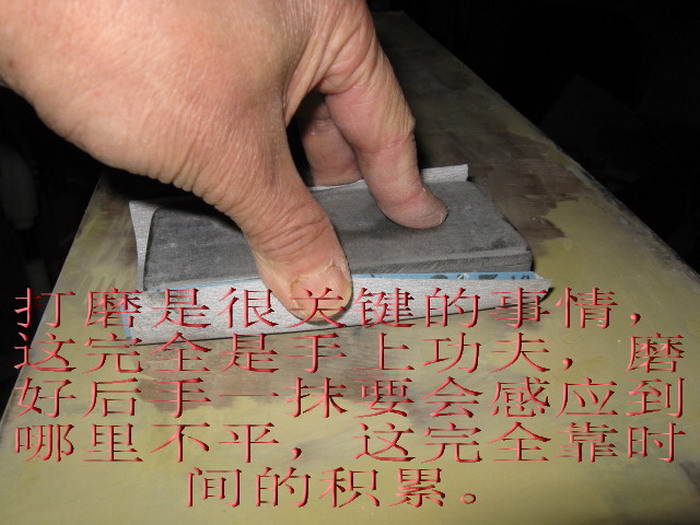 打磨是很关键的事情，
这完全是手上功夫，磨
好后手一抹要会感应到
哪里不平，这完全靠时
间的积累。